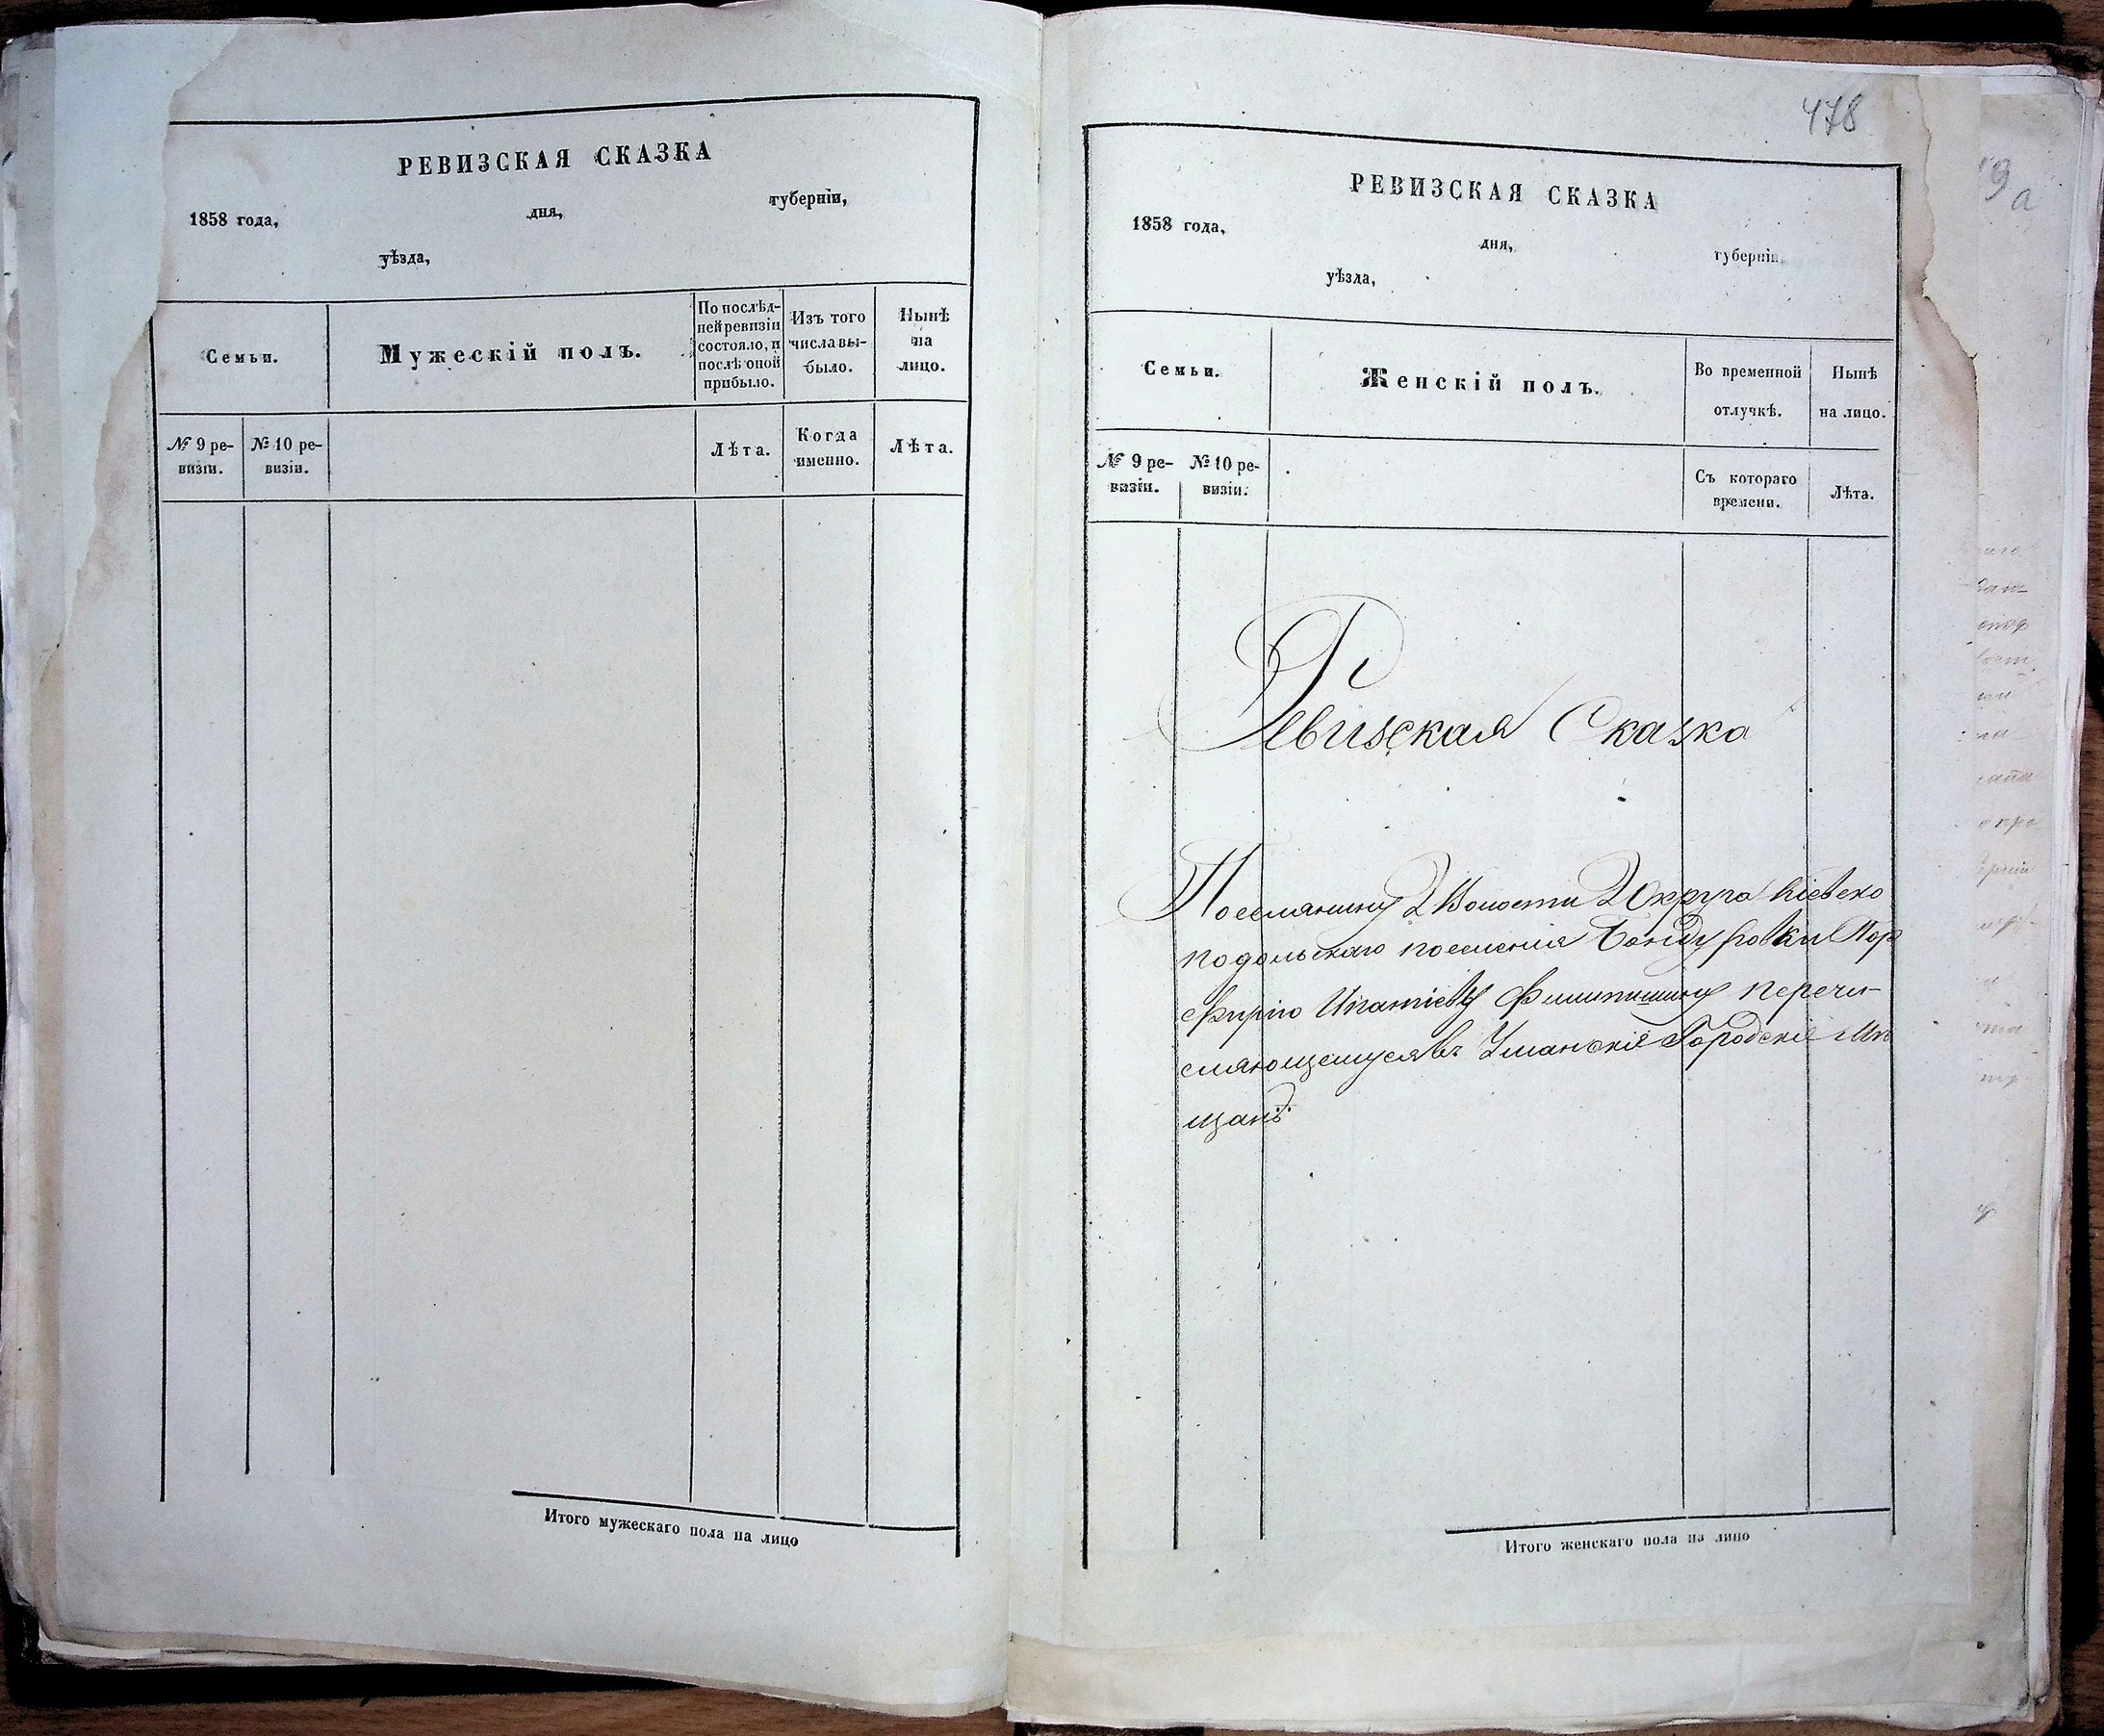 РЕВИЗСКАЯ СКАЗКА
1858 года, дня, губерніи,
уѣзда,
Семьи.
Мужескій полъ.
По послѣд-
ней ревизіи
состояло, и
послѣ оной
прибыло.
Изъ того
числа вы-
было.
Нынѣ
на
лицо.
№ 9 ре-
визіи.
№ 10 ре-
визіи.
Лѣта.
Когда
именно.
Лѣта.
Итого мужескаго пола на лицо
478
РЕВИЗСКАЯ СКАЗКА
1858 года, дня, губерніи,
уѣзда,
Семьи.
Женскій полъ.
Во временной
отлучкѣ.
Нынѣ
на лицо.
№ 9 ре-
визіи.
№ 10 ре-
визіи.
Съ котораго
времени.
Лѣта.
Ревизская Сказка
Поселянину 2 Волости 2 Округа Кіевско
подольскаго поселенія Бондуровки Пор
фирію Ипатіеву Филипишину перечи-
сляющемуся въ Уманскіе Городскіе Мѣ
щанѣ
Итого женскаго пола на лицо
9а